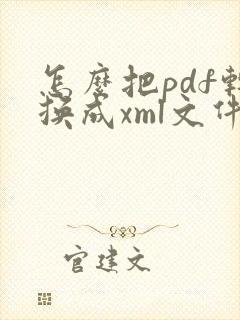 怎麼把pdf轉
換成xml文件
官建文